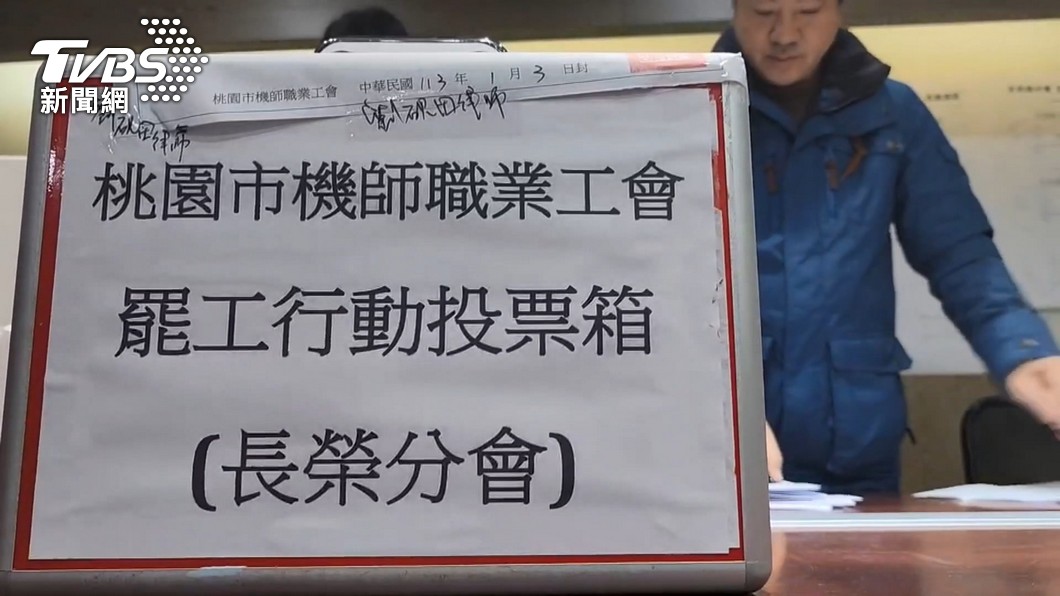 TVBS
新聞網
桃園市機師職業工會 中華民國 113 年 1 月 3 日封
桃園市機師職業工會
罷工行動投票箱
(長榮分會)